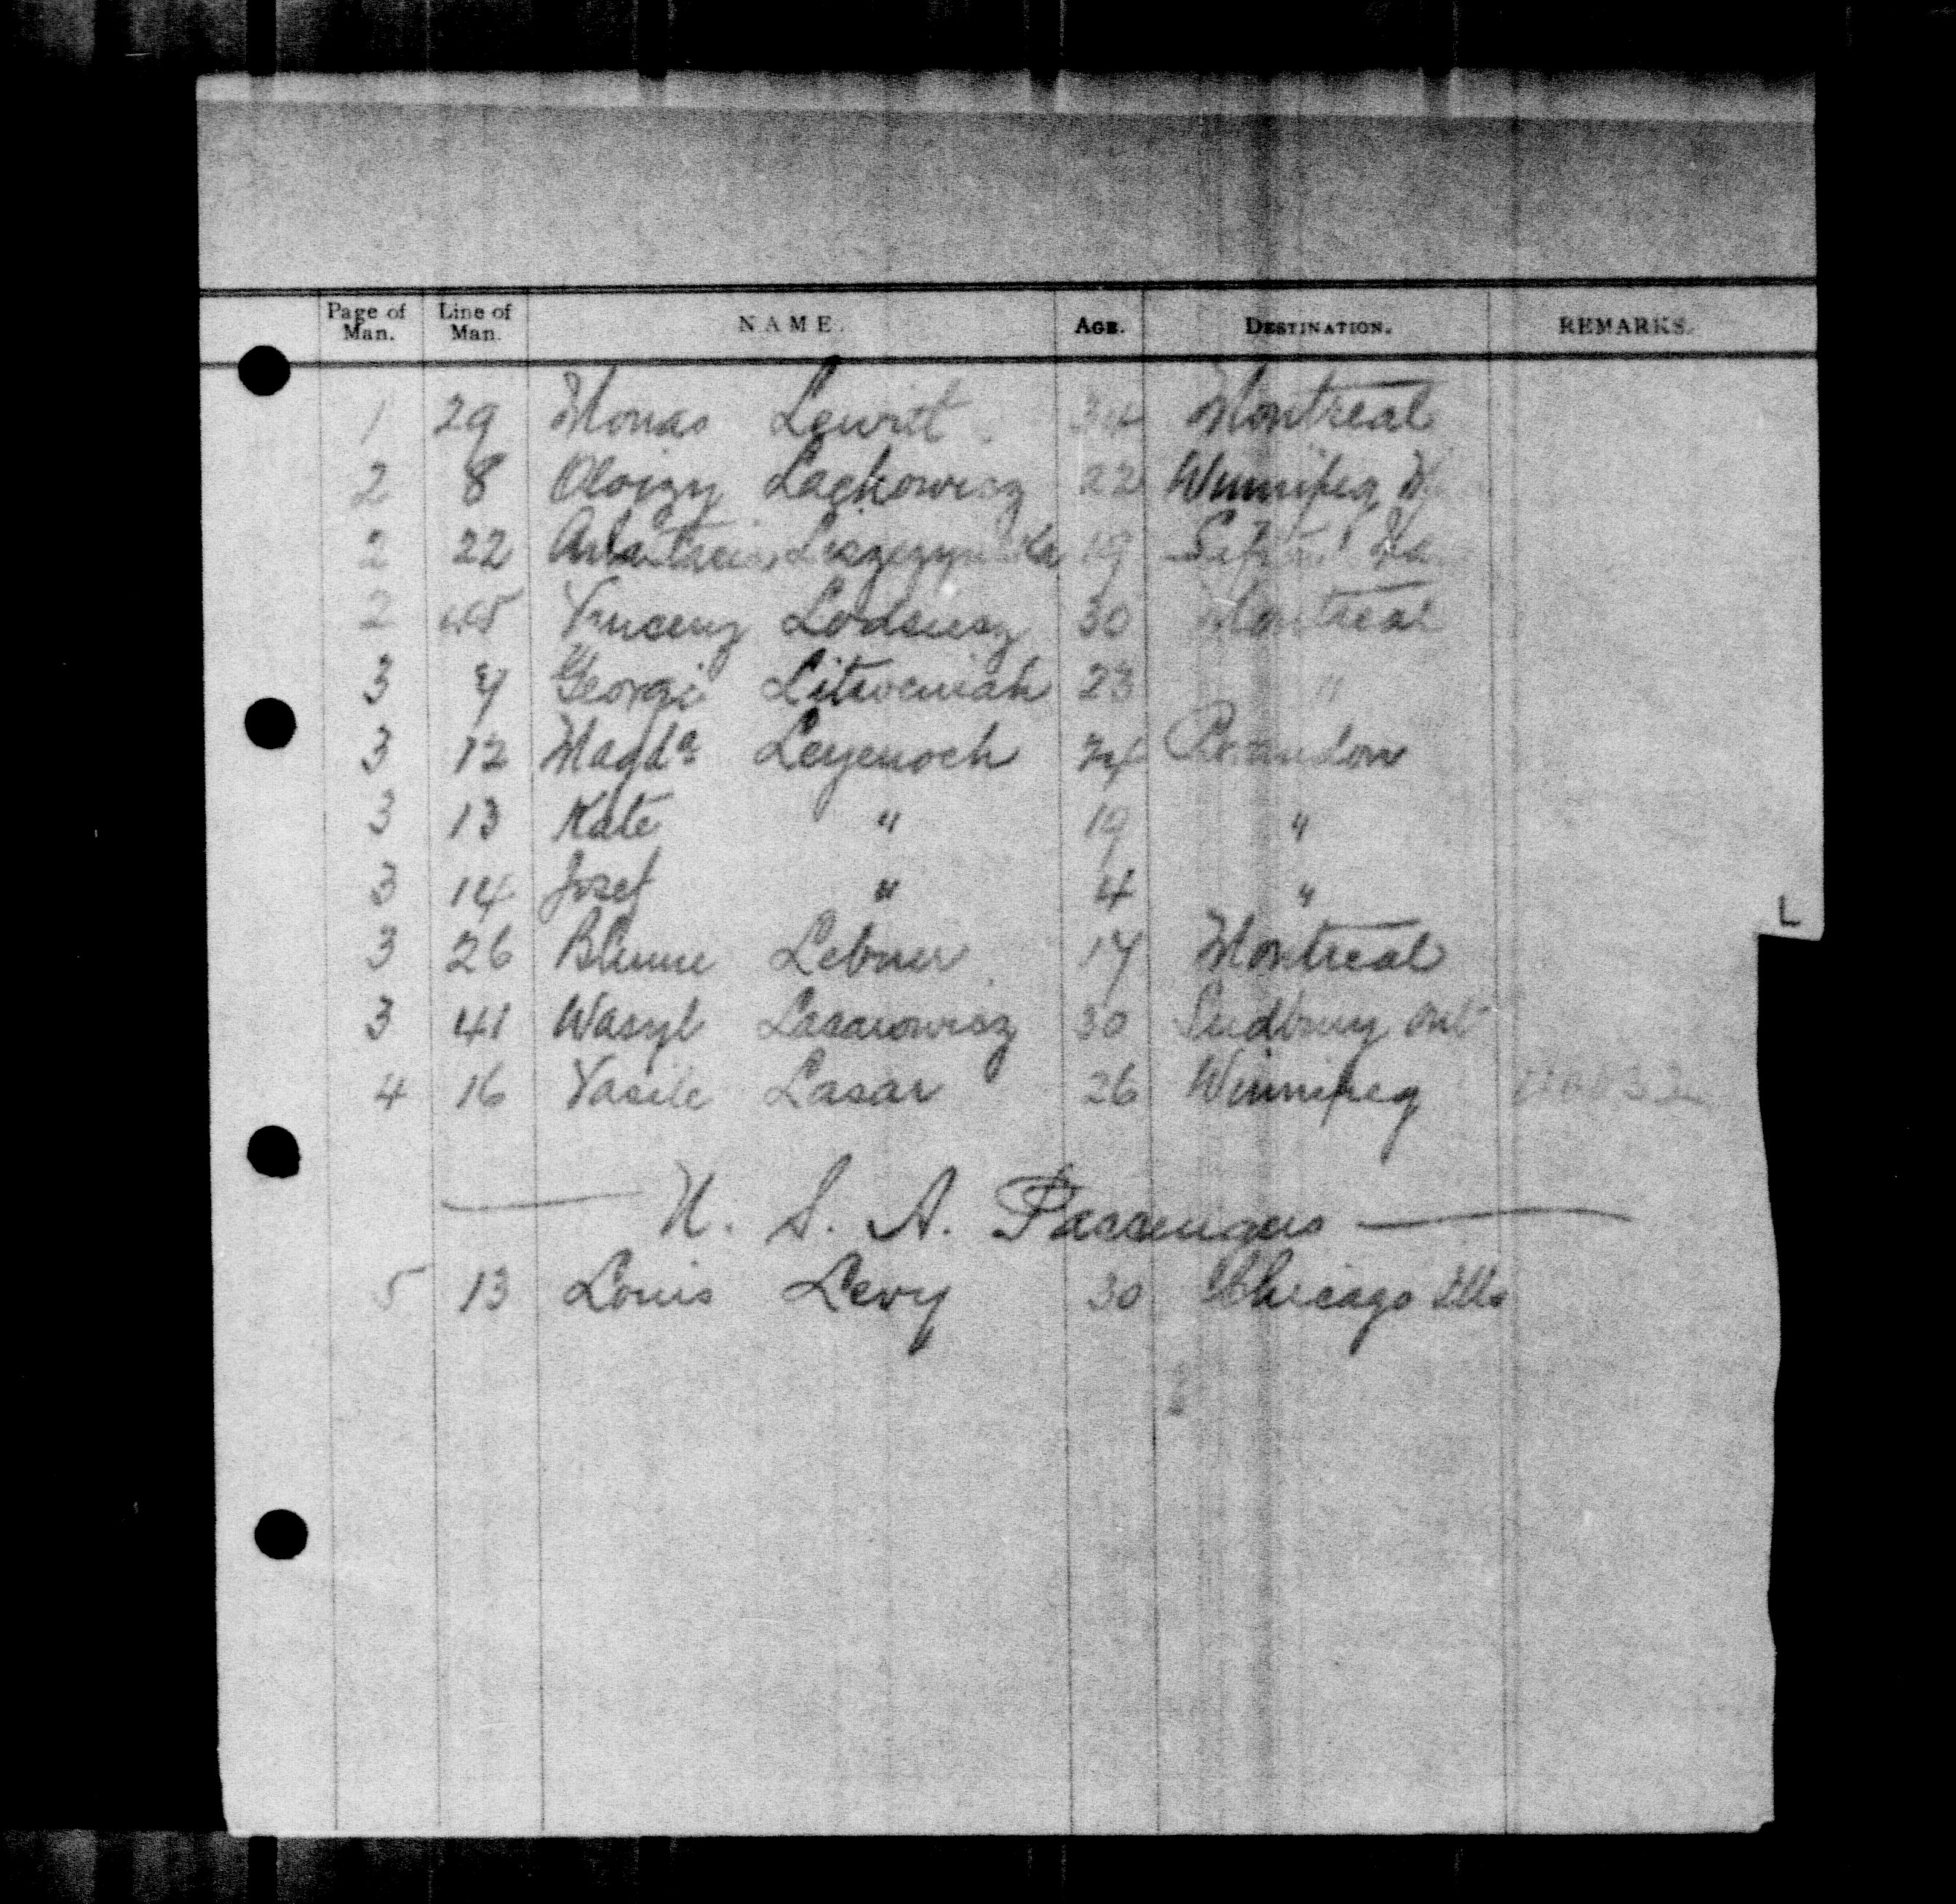 Page of Man. Line of Man. NAME. AGE. DESTINATION. REMARKS.
1 29 Monas Lewitt Montreal
2 8 Olojzy Lachowicz 22 Winnipeg
2 22 19
2 45 Vincenz Lodsiesz 30 Montreal
3 7 Georgi Litweniak 23 "
3 12 Magda Leyenoch 24 Brandon
3 13 Kate " 19 "
3 14 Josef " 4 "
L
3 26 Blume Lebner 17 Montreal
3 41 Wasyl Lasarowicz 30 Sudbury Ont
4 16 Vasile Lasar 26 Winnipeg
U. S. A. Passengers
5 13 Louis Levy 30 Chicago Ills